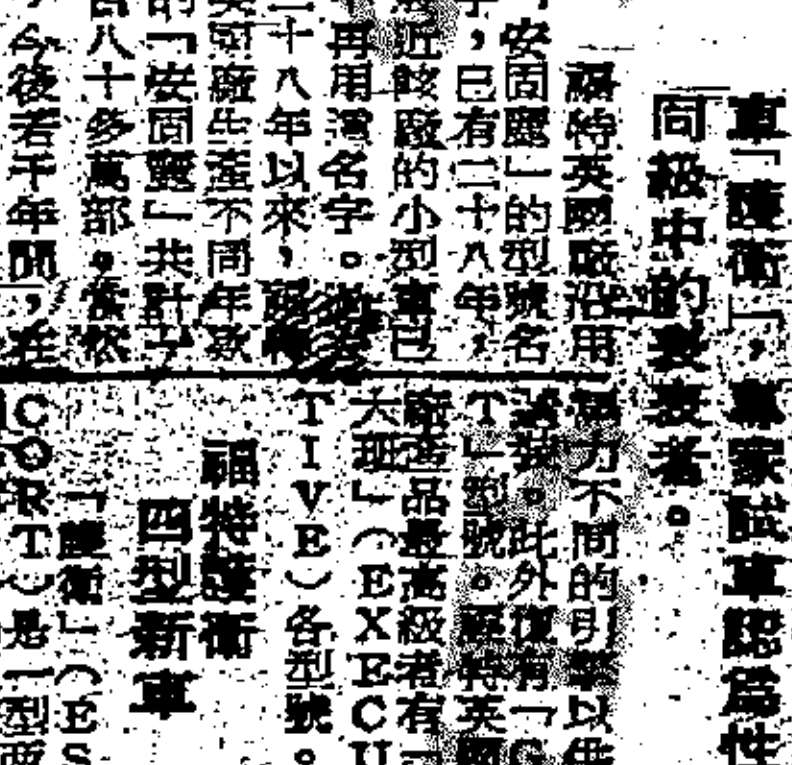 車「護衛」，專家試車認爲性
同級中的表表者。
福特英國廠沿用
「安固麗」的型號名
字，已有二十八年，
近該廠的小型車已
再用舊名字。
二十八年以來，福特
英國廠生產不同年款
的「安固麗」共計
百八十多萬部。當然
，今後若干年間，在
馬力不同的引擎以供
選裝。此外復有「G
T」型號。福特英國
廠產品最高級者有「
大班」（EXECU
TIVE）各型號。
福特護衛
四型新車
「護衛」（ES
CORT）是一型兩